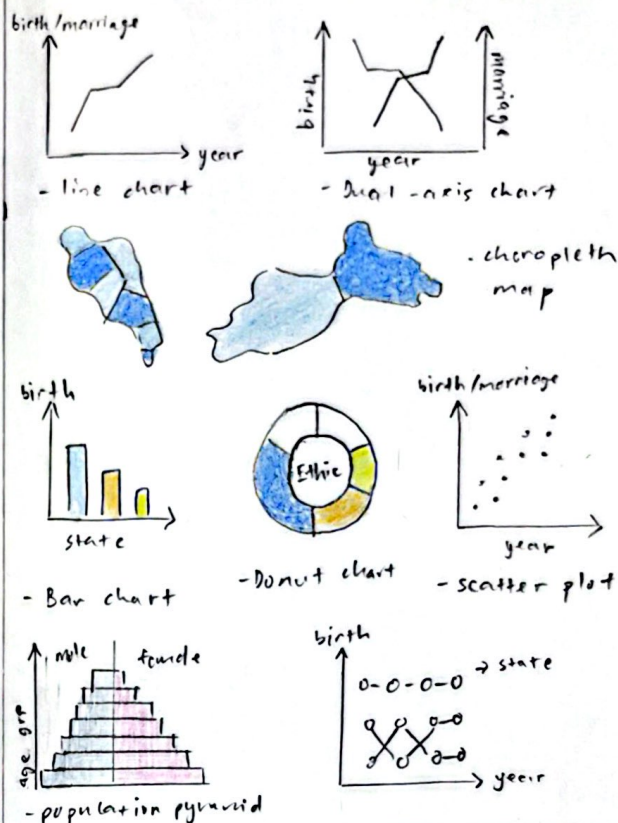 birth/marriage
year
- line chart
birth
marriage
year
- Dual -axis chart
- choropleth
map
birth
state
- Bar chart
Ethic
- Donut chart
birth/marriage
year
- scatter plot
male female
age grp
- population pyramid
birth
→ state
year